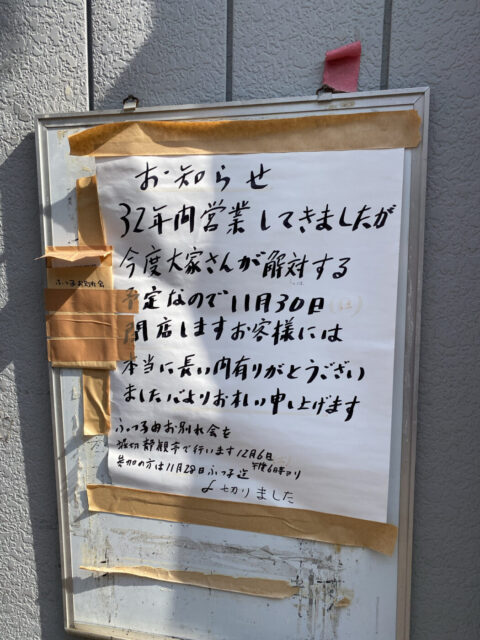 お知らせ
32年内営業してきましたが
今度大家さんが解対する
予定なので11月30日
閉店しますお客様には
本当に長い内有りがとうござい
ました心よりお礼い申し上げます
ふっ子由お別れ会を
堀切静観亭で行います12月6日
午後6時より
参加の方は11月28日ふっ子迄
〆切りました
ふっ子お別れ会